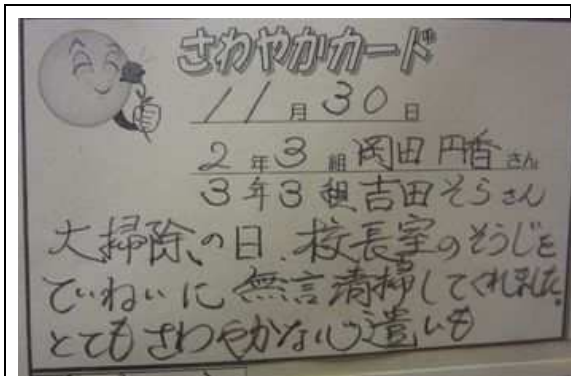 さわやかカード
11月30日
2年3組岡田円香さん
3年3組吉田そらさん
大掃除の日、校長室のそうじを
ていねいに無言清掃してくれました。
とてもさわやかな心遣いも